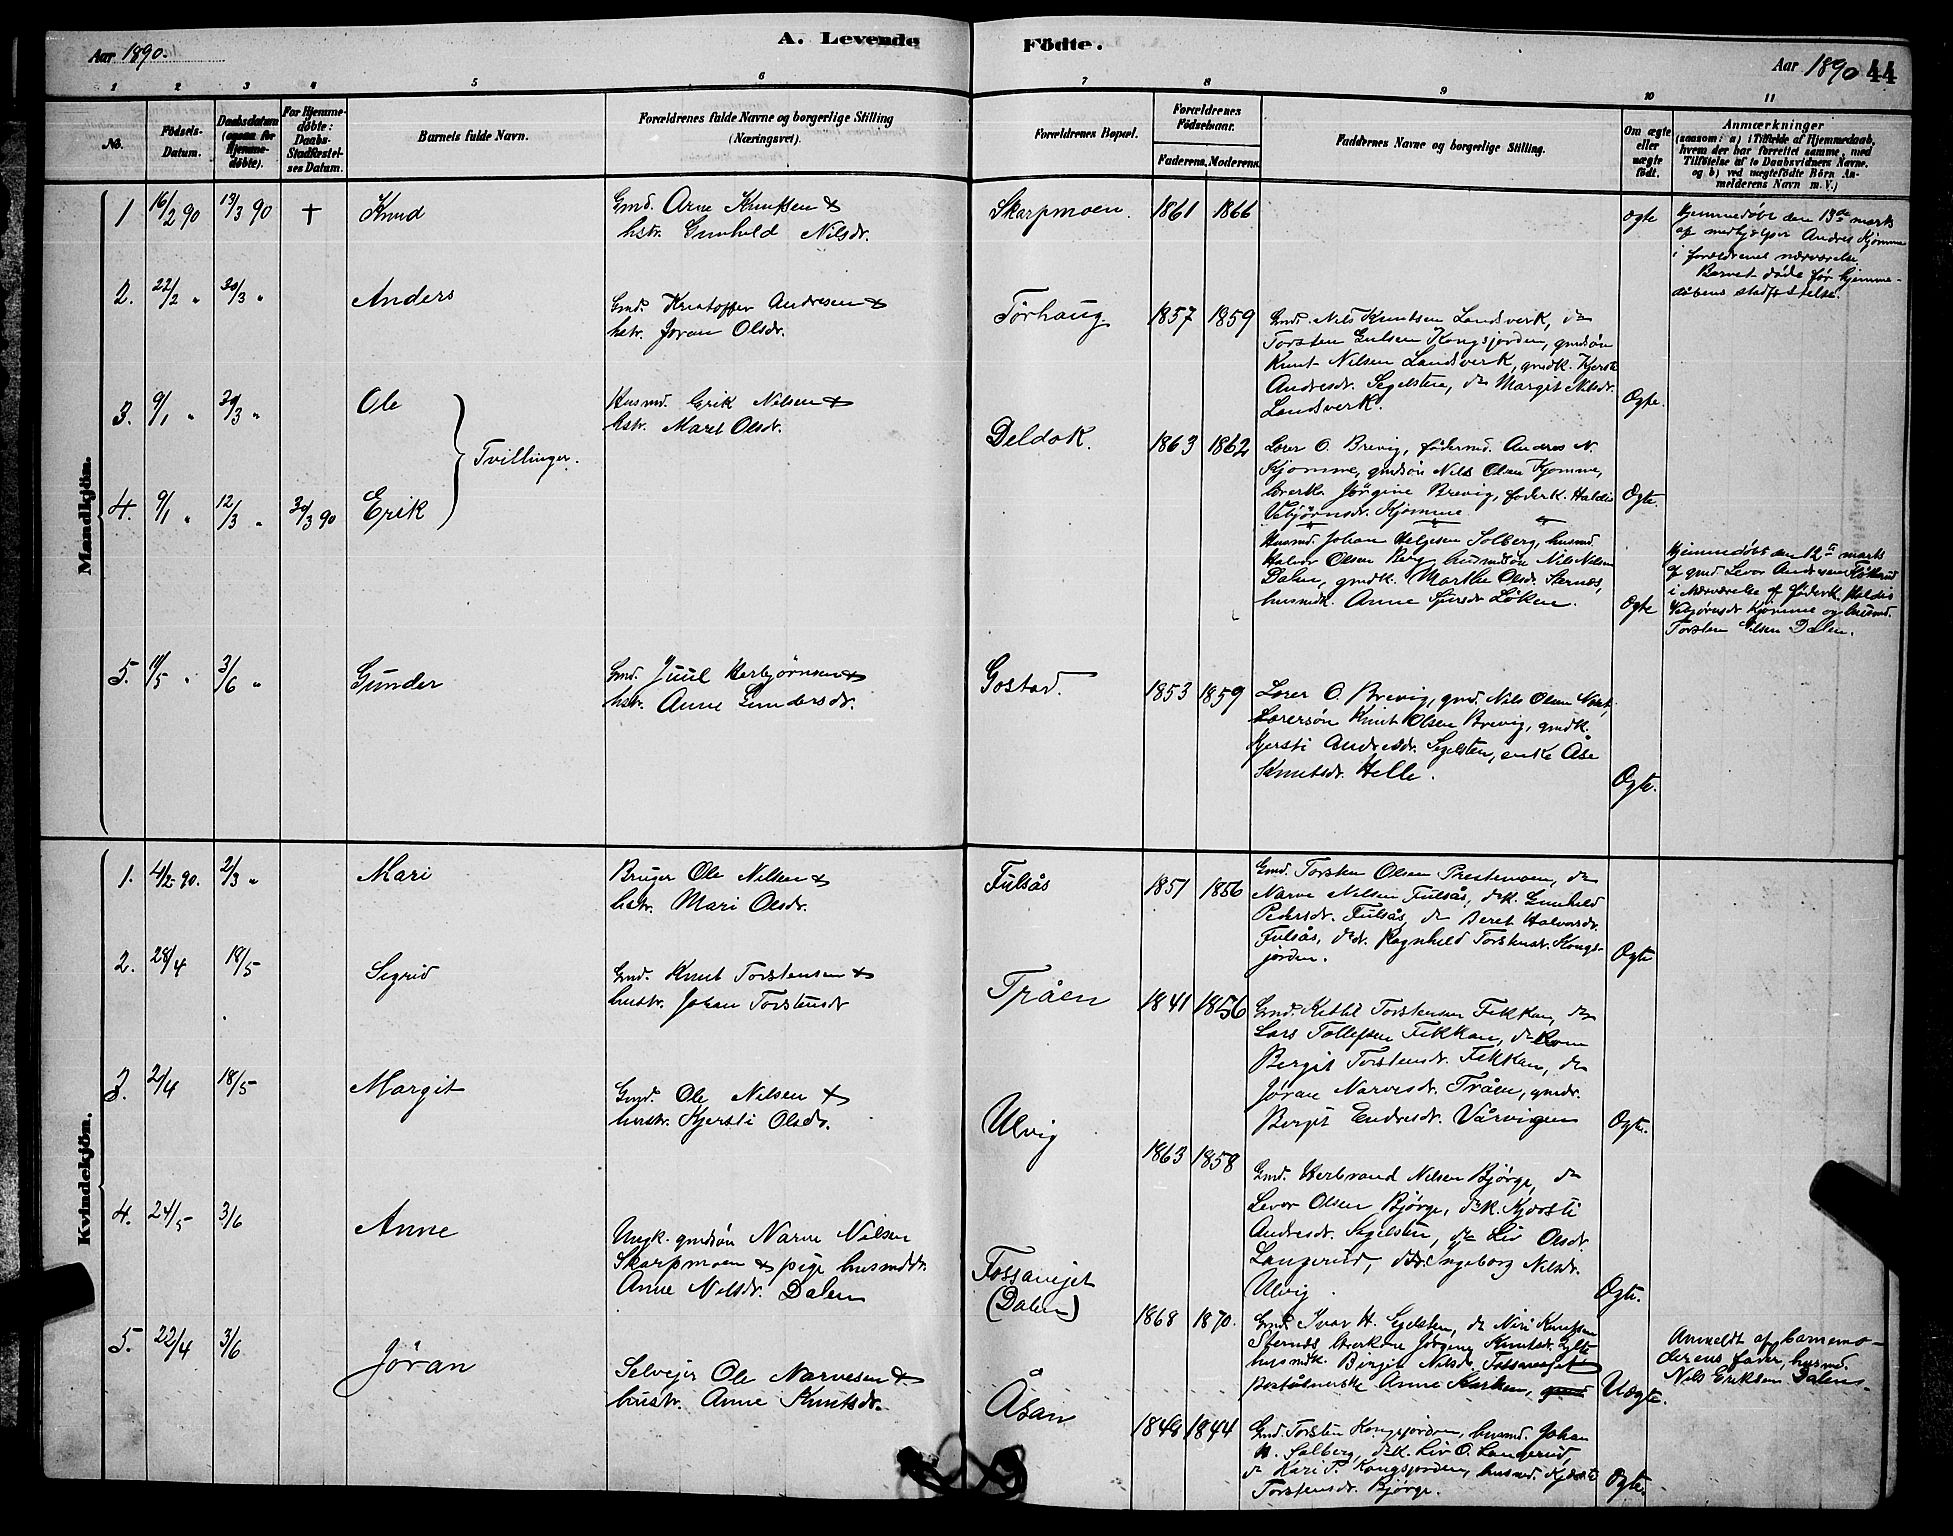 Aar 1890.
A. Levende
Födte.
Aar 1890
44
1 2 3 4 5 6 7 8 9 10 11
No.
Födsels-
Datum.
Daabsdatum
(ogsaa for
Hjemme-
döbte).
For Hjemme-
döbte:
Daabs-
Stadfæstel-
ses Datum.
Barnets fulde Navn.
Forældrenes fulde Navne og borgerlige Stilling
(Næringsvei).
Forældrenes Bopæl.
Forældrenes
Födselsaar.
Faderens. Moderens.
Faddernes Navne og borgerlige Stilling.
Om ægte
eller
uægte
födt.
Anmærkninger
(saasom: a) i Tilfælde af Hjemmedaab,
hvem der har forrettet samme, med
Tilföielse af to Daabsvidners Navne,
og b) ved uægtefödte Börn An-
melderens Navn m. V.)
Mandkjön.
1 16/2 90 13/3 90 † Knud
Gmd. Arne Knutsen &
hstr. Gunhild Nilsdr.
Skarpmoen. 1861 1866
ægte
Hjemmedøbt den 13de marts
af medhjælper Andres Kjømme
i forældrenes nærværelse
Barnet døde før hjemme-
døbens stadfæstelse.
2. 22/2 " 30/3 " Anders
Gmd. Kristoffer Andresen &
hstr. Jøran Olsdr.
Tørhaug 1857 1859
Gmd. Nils Knutsen Landsverk, do
Torsten Gulsen Kongsjorden, gmdsøn
Knut Nilsen Landsverk, gmdk. Kjersti
Andresdr. Segelsten, do Margit Nilsdr.
Landsverk.
Ægte.
3. 9/1 " 30/3 " Ole
Husmd. Erik Nilsen &
hstr. Marit Olsdr.
Tvillinger.
Deldok. 1863 1862
Lærer O. Brevig, fødermd. Andres N.
Kjømme, gmdsøn Nils Olsen Kjømme,
lærerk. Jørgine Brevig, føderk. Haldis
Vebjørnsdr. Kjømme
Ægte.
4. 9/1 " 12/3 " 30/3 90 Erik
Husmd. Johan Helgesen Solberg, husmd.
Halvor Olsen Berg, husmdsøn Nils Nilsen
Dalen, gmdk. Marthe Olsdr. Sternes,
husmdk. Anne Sjursdr Løken.
Ægte
Hjemmedøbt den 12te marts
af gmd Levor Andersen Fløterud
i nærværelse af føderk. Haldis
Vebjørnsdr Kjømme og husmd.
Torsten Nilsen Dalen.
5. 11/5 " 3/6 " Gunder
Gmd. Juul Herbjørnsen &
hstr. Anne Gundersdr.
Gostad. 1853 1859
Lærer O. Brevig, gmd. Nils Olsen
Lærersøn Knut Olsen Brevig, gmdk.
Kjersti Andresdr. Segelsten, enke Åse
Knutsdr. Helle.
Ægte.
Kvindekjön.
1. 4/2 90. 2/3 " Mari
Bruger Ole Nilsen &
hstr. Mari Olsdr.
Fulsås 1851 1856
Gmd. Torsten Olsen Prestemoen, do
Narve Nilsen Fulsås, do k. Gunhild
Pedersdr. Fulsås, do Beret Halvorsdr.
Fulsås, do dr. Ragnhild Torstensdr. Kongs-
jorden.
Ægte
2. 28/4 18/5 Sigrid
Gmd. Knut Torstensen &
hustr. Johan Torstensdr
Tråen 1841 1856
Gmd. Kittil Torstensen Fekkan, do
Lars Tollefsen Fekkan, do Kone
Bergit Torstensdr. Fekkan, do
Jøran Narvesdr. Tråen, gmdr.
Bergit Endresdr. Vårvigen
Ægte.
3. 2/4 18/5 Margit
Gmd. Ole Nilsen &
hustr. Kjersti Olsdr.
Ulvig 1863 1858
Gmd. Herbrand Nilsen Bjørge, do
Levor Olsen Bjørge, do k. Kjersti
Andresdr. Segelsten, do Liv Olsdr.
Langerud, do dr. Ingeborg Nilsdr.
Ulvig.
Ægte.
4. 24/5 3/6 Anne
Ungk. gmdsøn Narve Nilsen
Skarpmoen & pige husmddr.
Anne Nilsdr. Dalen
Fossaneset
(Dalen) 1868 1870.
Gmd. Ivar H. Segelsten, do Nils Knutsen
Sternes, lærerkone Jørgine
husmdk. Birgit Nilsdr. Fossneset
Anne
Uægte.
Anmeldt af barnemo-
derens fader, husmd.
Nils Eriksen Dalen.
5. 22/4 3/6 Jöran
Selvejer Ole Narvesen &
hustr. Anne Knutsdr.
Åsan 1848 1844
Gmd. Torsten Kongsjorden, husmd. Johan
H. Solberg, do k. Liv O. Langerud,
do Kari T. Kongsjorden, husmd. Kjersti
Torstensdr. Bjørge.
Ægte.